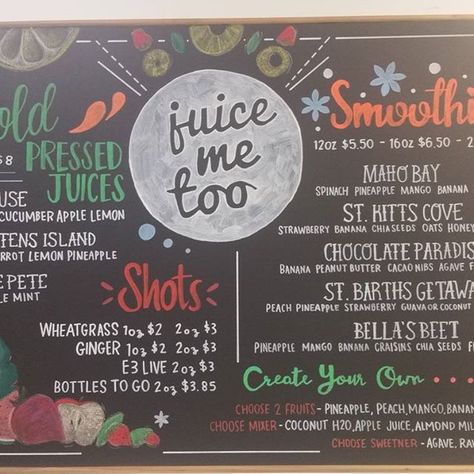 juice
me
too
old
PRESSED
JUICES
CUCUMBER APPLE LEMON
ISLAND
LEMON PINEAPPLE
PETE
MINT
Shots
WHEATGRASS 1oz $2 2oz $3
GINGER 1oz $2 2oz $3
E3 LIVE 2oz $3
BOTTLES TO GO 2oz $3.85
Smoothi
12oz $5.50 - 16oz $6.50 - 2
MAHO BAY
SPINACH PINEAPPLE MANGO BANANA
ST. KITTS COVE
STRAWBERRY BANANA CHIA SEEDS OATS HONEY
CHOCOLATE PARADIS
BANANA PEANUT BUTTER CACAO NIBS AGAVE
ST. BARTHS GETAWA
PEACH PINEAPPLE STRAWBERRY GUAVA OR COCONUT
BELLA'S BEET
PINEAPPLE MANGO BANANA CRAISINS CHIA SEEDS
Create Your Own ....
CHOOSE 2 FRUITS - PINEAPPLE, PEACH, MANGO, BANAN
CHOOSE MIXER - COCONUT H2O, APPLE JUICE, ALMOND MIL
CHOOSE SWEETNER - AGAVE, RAW